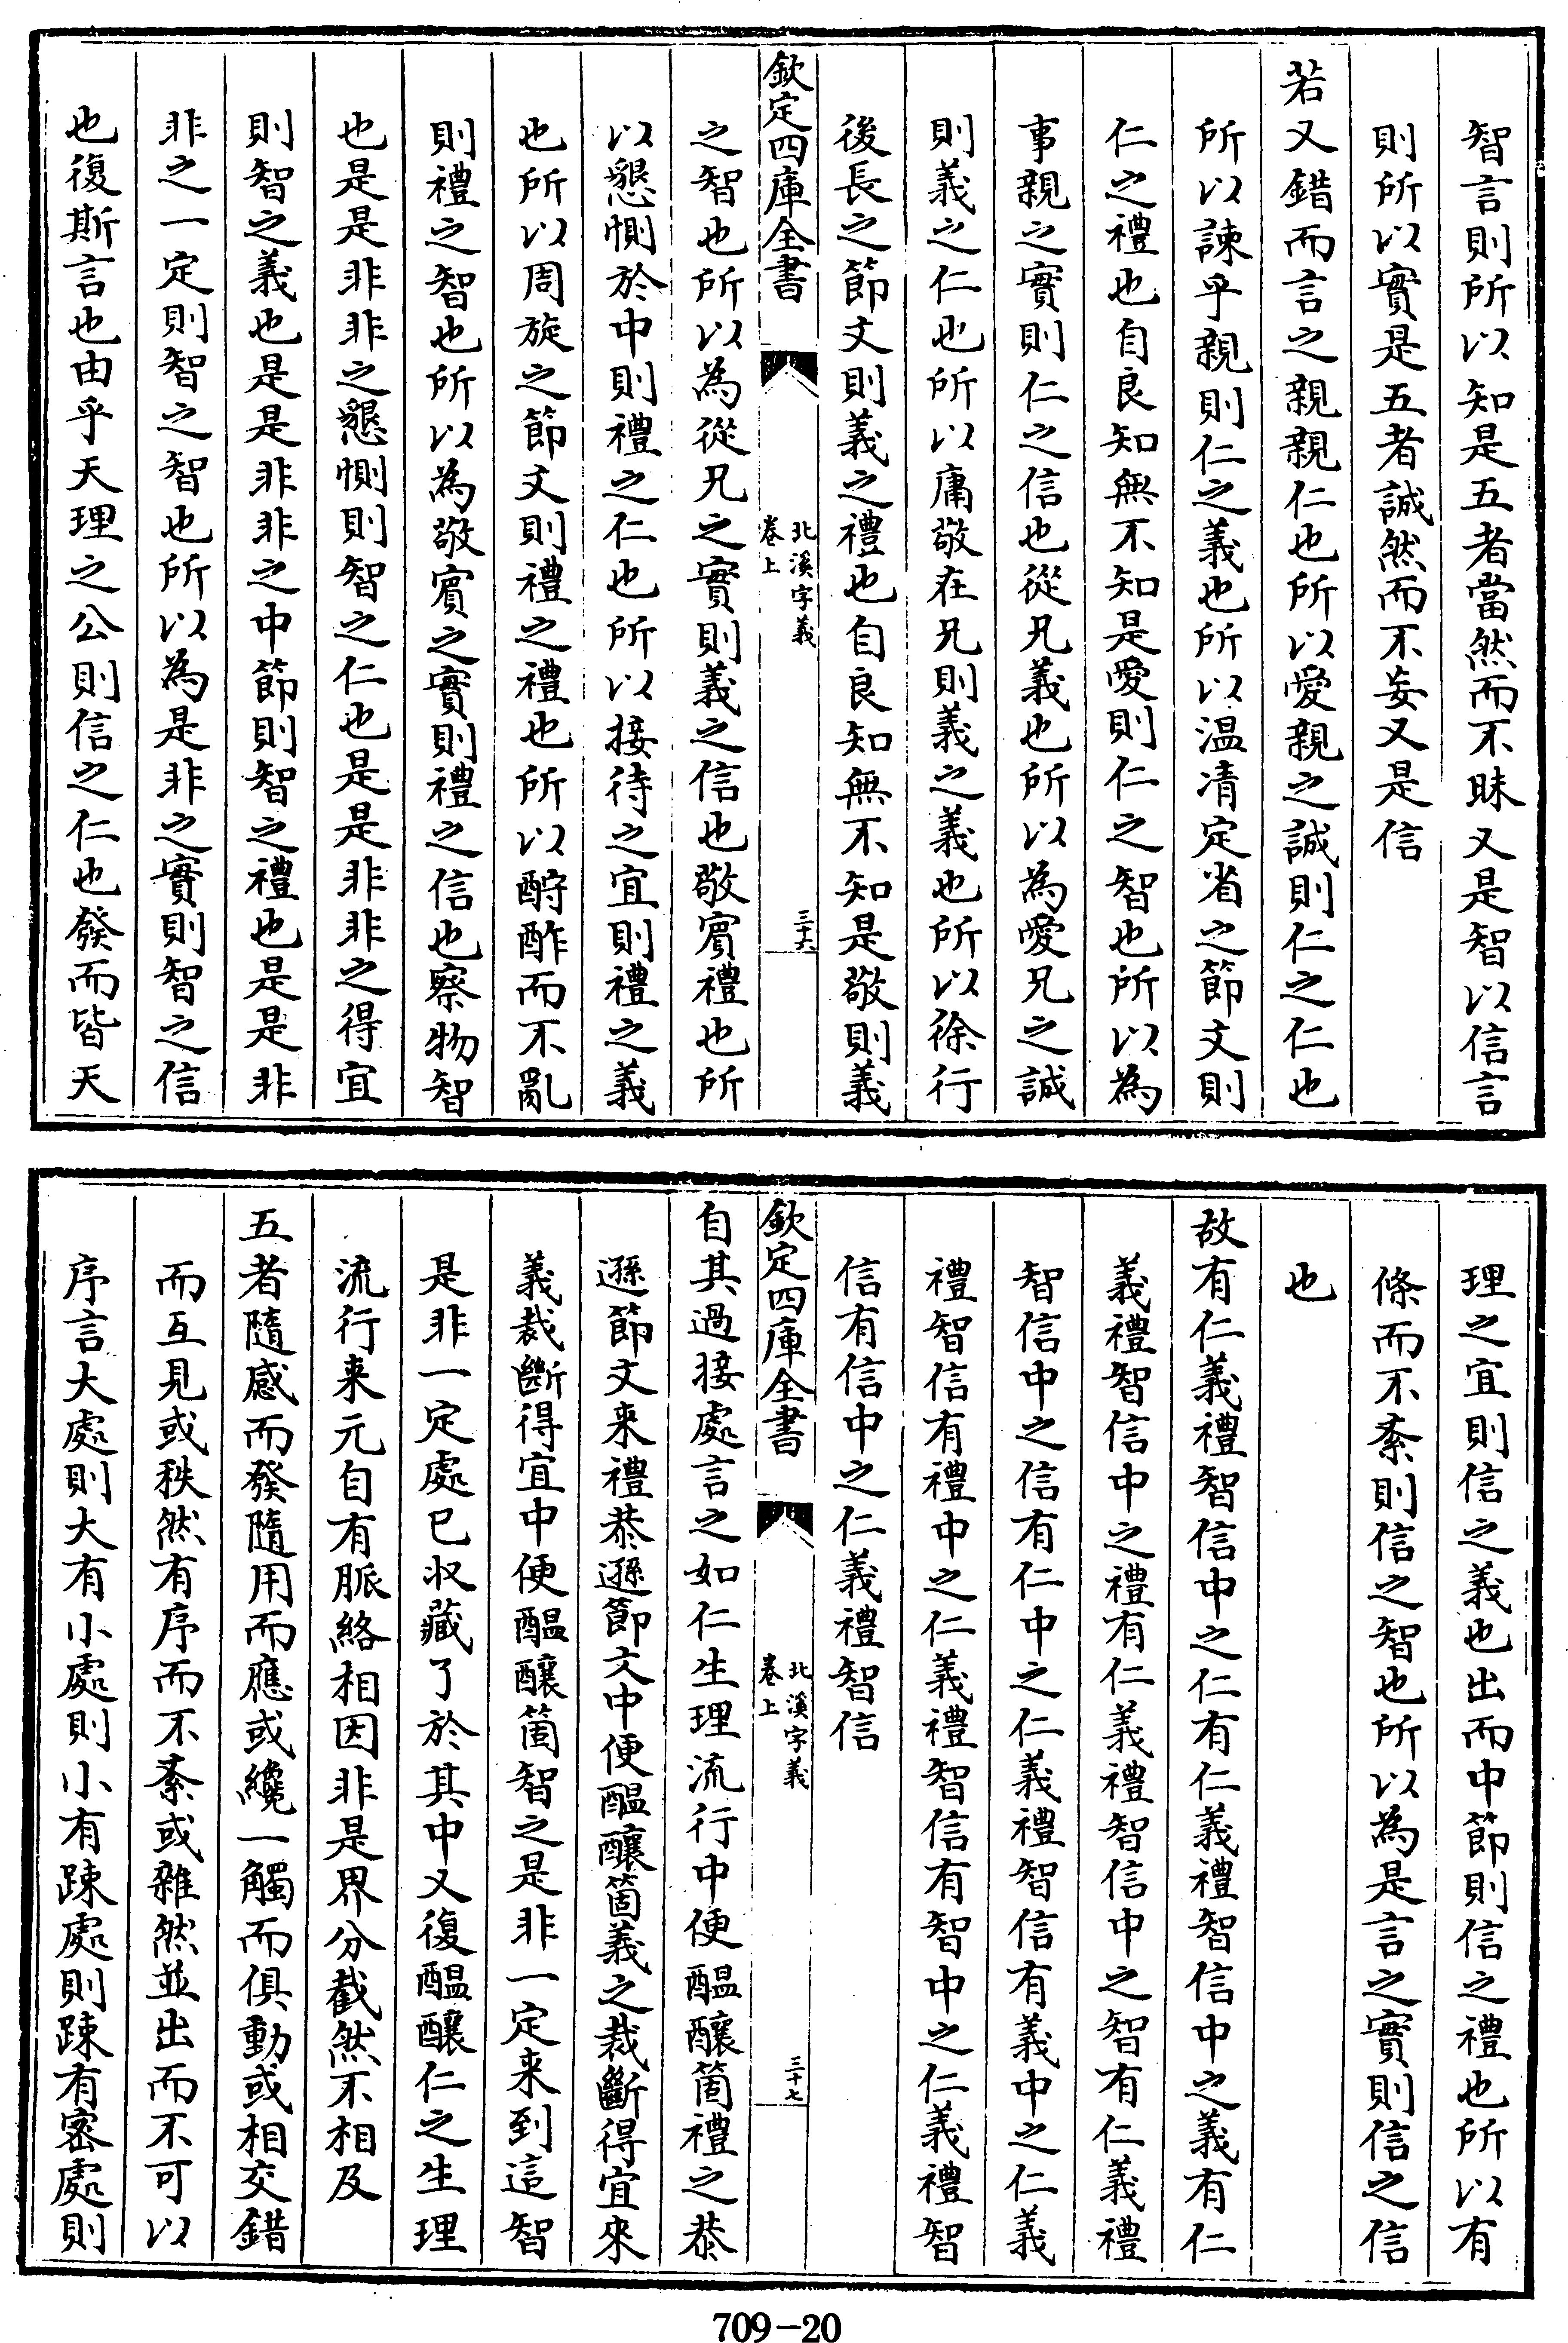 智言則所以知是五者當然而不昧又是智以信言
則所以實是五者誠然而不妄又是信
若又錯而言之親親仁也所以愛親之誠則仁之仁也
所以諫乎親則仁之義也所以温凊定省之節文則
仁之禮也自良知無不知是愛則仁之智也所以為
事親之實則仁之信也從兄義也所以為愛兄之誠
則義之仁也所以庸敬在兄則義之義也所以徐行
後長之節文則義之禮也自良知無不知是敬則義
欽定四庫全書
北溪字義
卷上
三十六
之智也所以為從兄之實則義之信也敬賔禮也所
以懇惻於中則禮之仁也所以接待之宜則禮之義
也所以周旋之節文則禮之禮也所以酧酢而不亂
則禮之智也所以為敬賔之實則禮之信也察物智
也是是非非之懇惻則智之仁也是是非非之得宜
則智之義也是是非非之中節則智之禮也是是非
非之一定則智之智也所以為是非之實則智之信
也復斯言也由乎天理之公則信之仁也發而皆天
理之宜則信之義也出而中節則信之禮也所以有
條而不紊則信之智也所以為是言之實則信之信
也
故有仁義禮智信中之仁有仁義禮智信中之義有仁
義禮智信中之禮有仁義禮智信中之智有仁義禮
智信中之信有仁中之仁義禮智信有義中之仁義
禮智信有禮中之仁義禮智信有智中之仁義禮智
信有信中之仁義禮智信
欽定四庫全書
北溪字義
卷上
三十七
自其過接處言之如仁生理流行中便醖釀箇禮之恭
遜節文来禮恭遜節文中便醖釀箇義之裁斷得宜來
義裁斷得宜中便醖釀箇智之是非一定来到這智
是非一定處已収藏了於其中又復醖釀仁之生理
流行来元自有脈絡相因非是界分截然不相及
五者隨感而發隨用而應或纔一觸而俱動或相交錯
而互見或秩然有序而不紊或雜然並出而不可以
序言大處則大有小處則小有踈處則踈有密處則
709-20